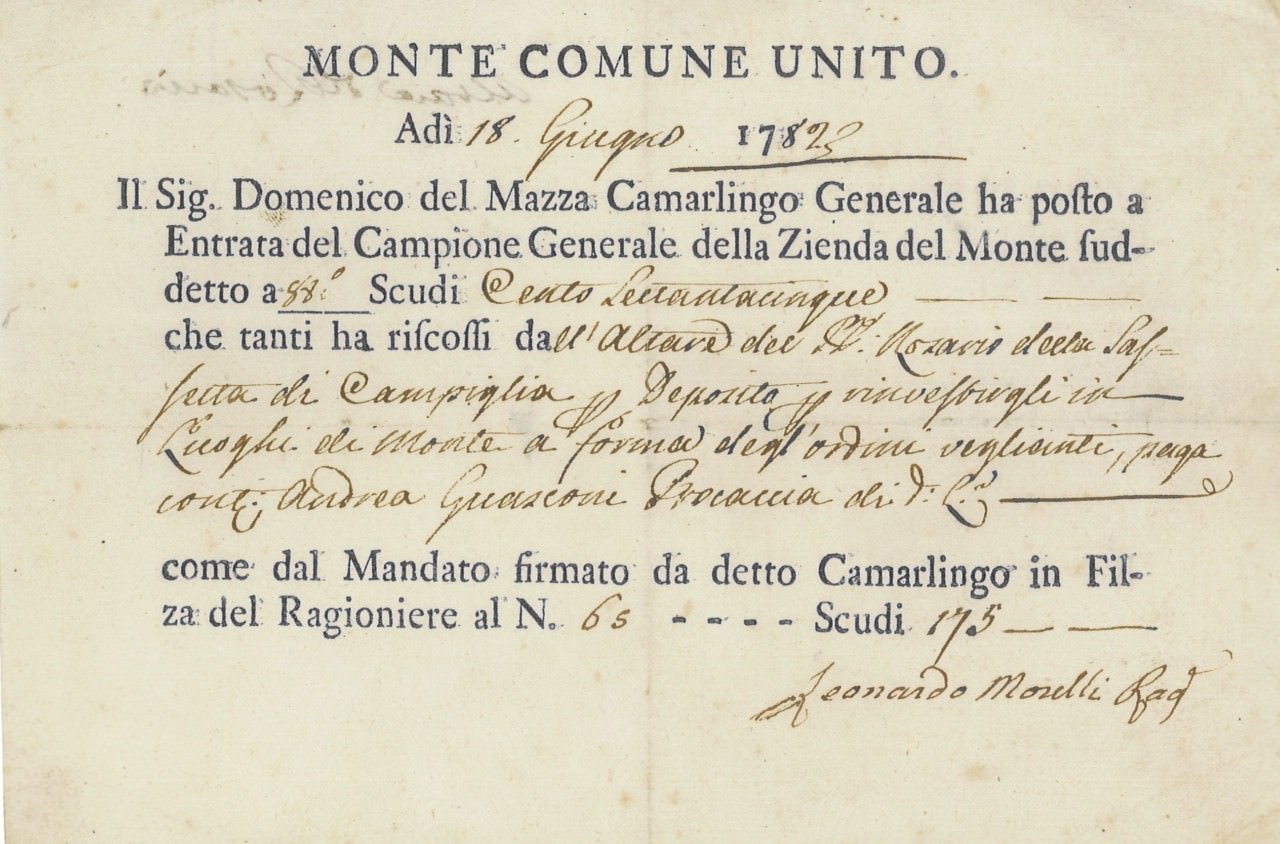 MONTE COMUNE UNITO.
Adì 18. Giugno 178
Il Sig. Domenico del Mazza Camarlingo Generale ha poſto a
Entrata del Campione Generale della Zienda del Monte ſud-
detto a 88.º Scudi Cento Settantacinque
che tanti ha riſcoſſi dall'Altare del SS. Rosario della Saſ=
ſetta di Campiglia p Deposito p rinvestirgli in
Luoghi di Monte a forma degl'ordini veglianti, paga
cont: Andrea Guasconi Procaccia di d:
come dal Mandato firmato da detto Camarlingo in Fil-
za del Ragioniere al N. 65 - - - - Scudi 175
Leonardo Morelli Rag